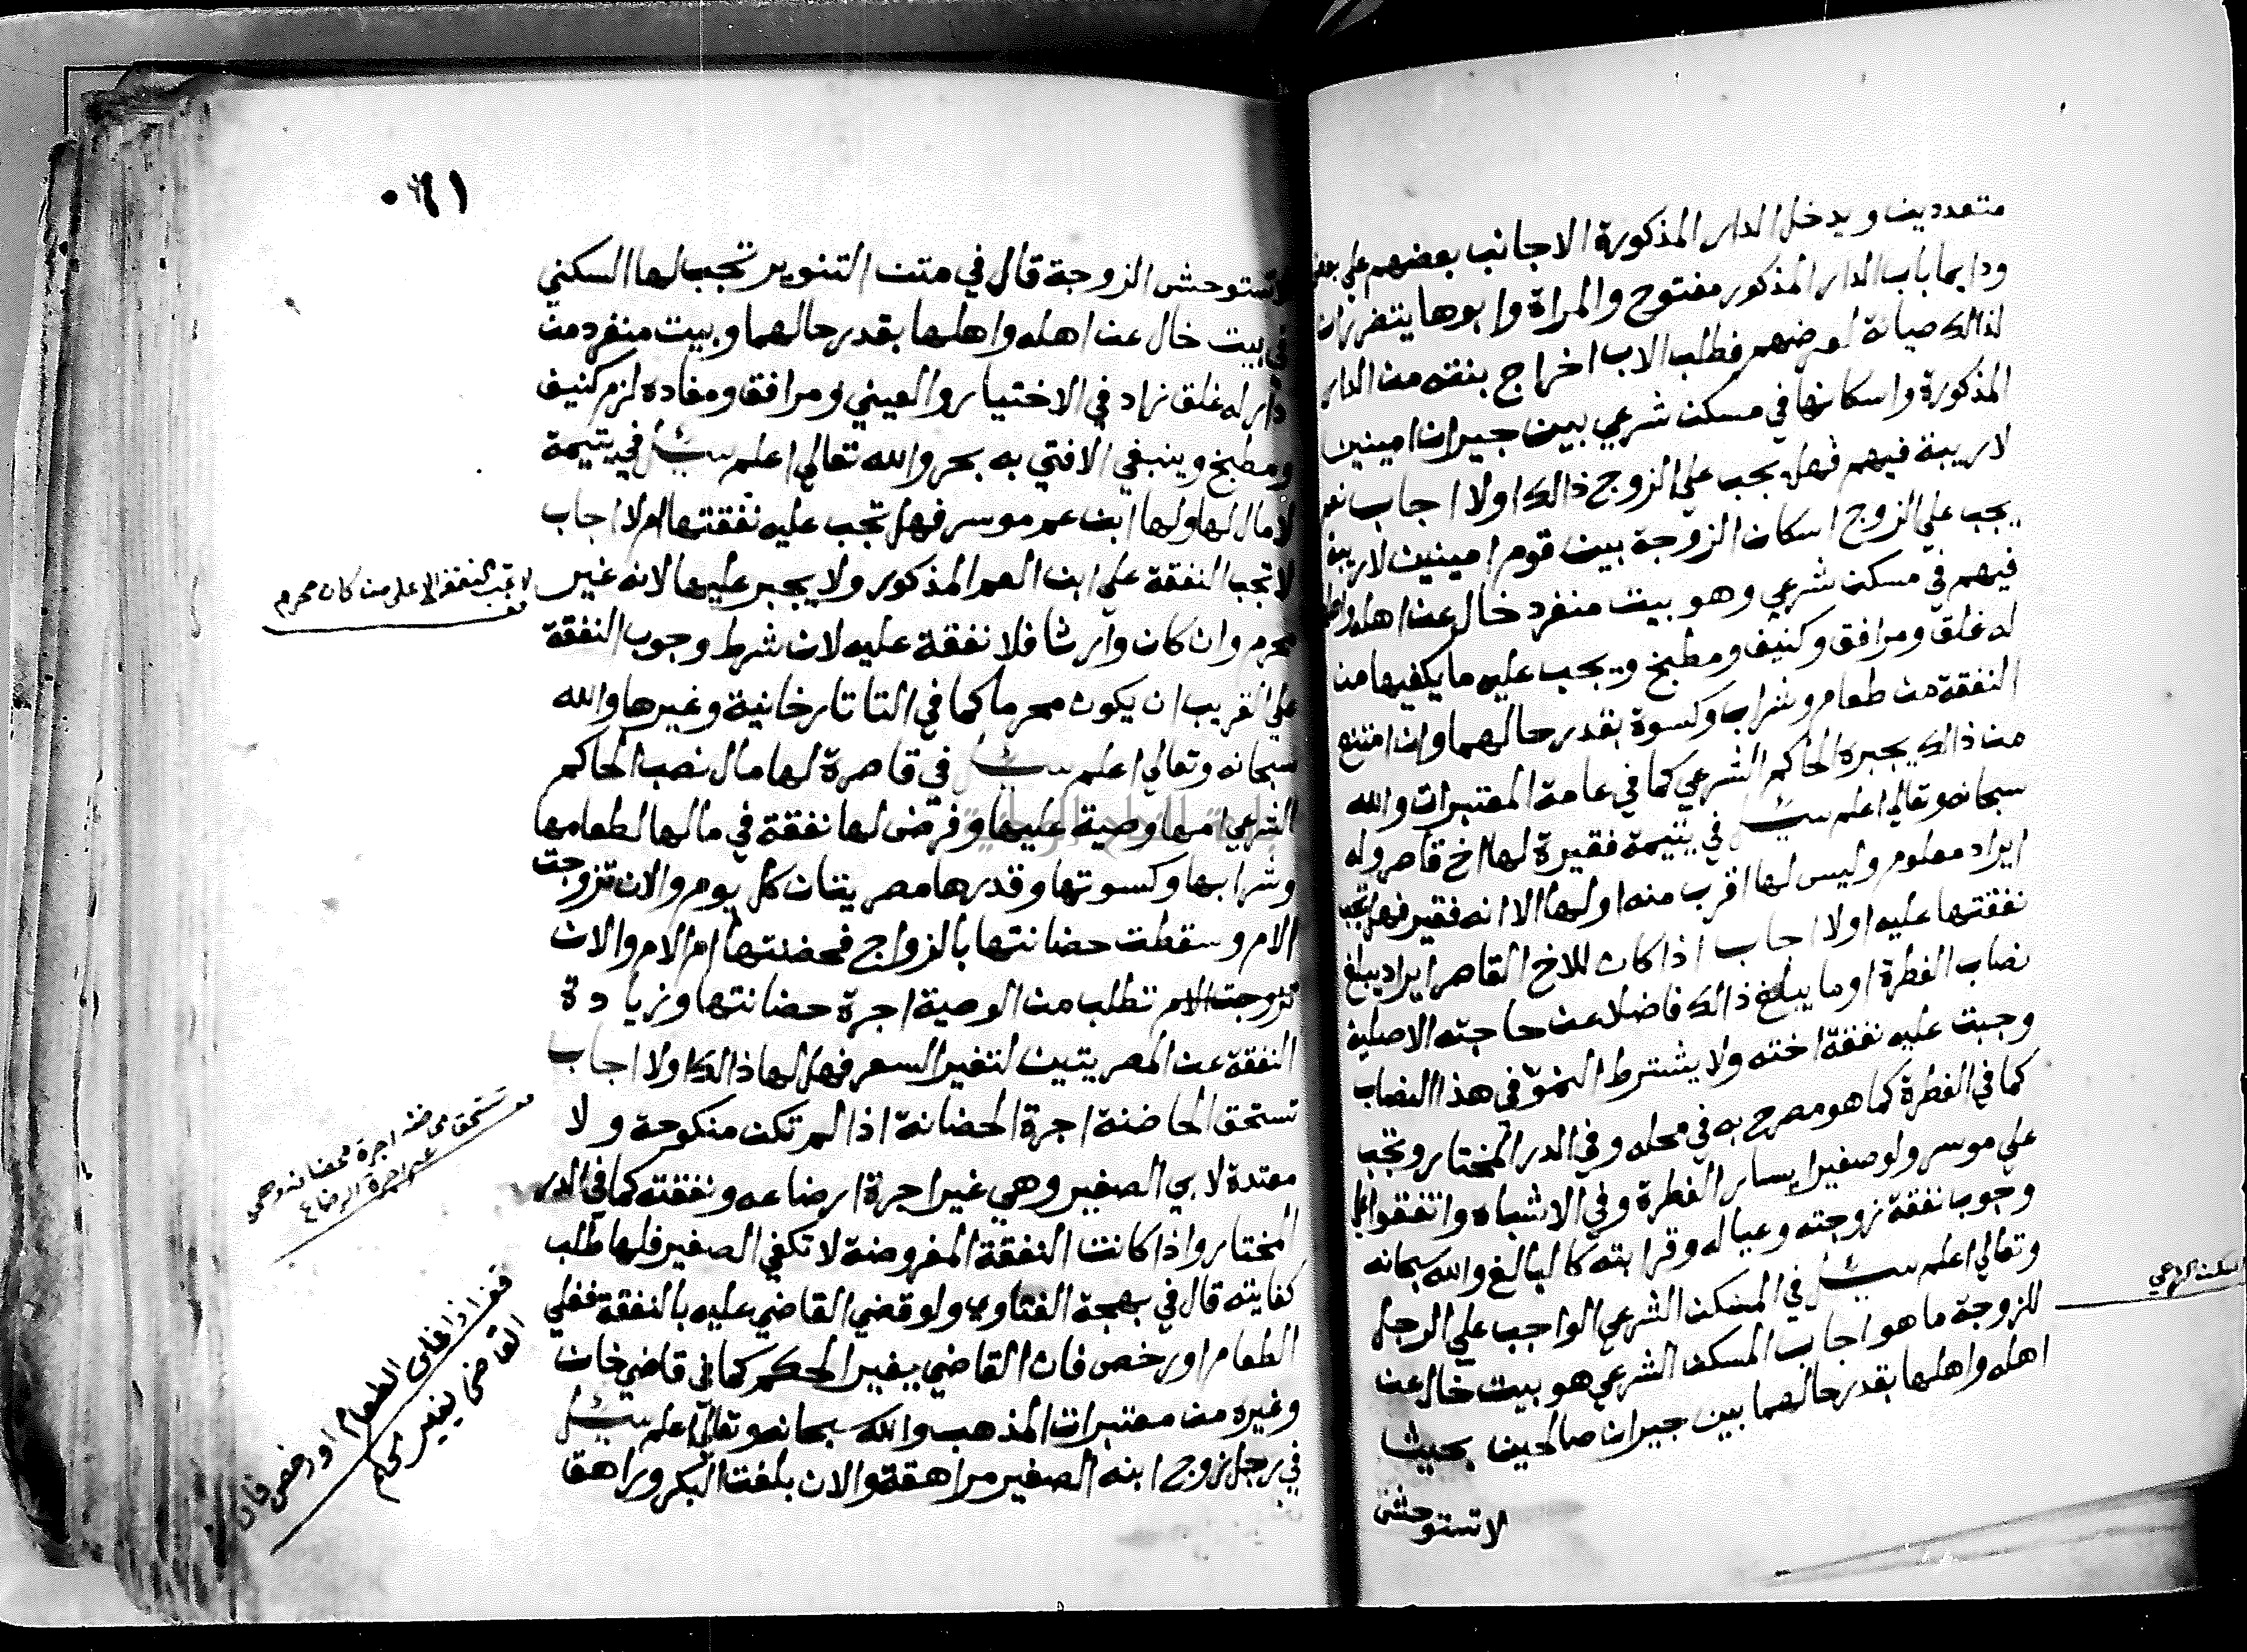 متعددين ويدخل الدار المذكورة الاجانب بعضهم علي بعض
ودايما باب الدار المذكور مفتوح والمراة وابوها يتضرران
لذالك صيانة لعرضهم فطلب الاب اخراج بنته من الدار
المذكورة واسكانها في مسكن شرعي بين جيران امينين
لاريبة فيهم فهل يجب علي الزوج ذالك اولا اجاب نعم
يجب علي الزوج اسكان الزوجة بين قوم امينين لاريبة
فيهم في مسكن شرعي وهو بيت منفرد خال عن اهله واهلها
له غلق ومرافق وكنيف ومطبخ ويجب عليه ما يكفيها من
النفقة من طعام وشراب وكسوة بقدر حالهما وان امتنع
من ذالك يجبره الحاكم الشرعي كما في عامة المعتبرات والله
سبحانه وتعالي اعلم سئل في يتيمة فقيرة لها اخ قاصر وله
ايراد معلوم وليس لها اقرب منه اولها الا انه فقير فهل تجب
نفقتها عليه اولا اجاب اذا كان للاخ القاصر ايراد يبلغ
نصاب الفطرة او ما يبلغ ذالك فاضلا عن حاجته الاصلية
وجبت عليه نفقة اخته ولا يشترط النمو في هذا النصاب
كما في الفطرة كما هو مصرح به في محله وفي الدر المختار وتجب
علي موسر ولو صغيرا يسار الفطرة وفي الاشباه واتفقوا علي
وجوب نفقة زوجته وعياله وقرابته كالبالغ والله سبحانه
وتعالي اعلم سئل في المسكن الشرعي الواجب علي الرجل
للزوجة ما هو اجاب المسكن الشرعي هو بيت خال عن
اهله واهلها بقدر حالهما بين جيران صالحين بحيث
لا تستوحش
المسكن الشرعي
٠٦١
لا تستوحش الزوجة قال في متن التنوير تجب لها السكني
في بيت خال عن اهله واهلها بقدر حالهما وبيت منفرد من
دار له غلق زاد في الاختيار والعيني ومرافق ومفاده لزم كنيف
ومطبخ وينبغي الافتي به بحر والله تعالي اعلم سئل في يتيمة
لا مال لها ولها ابن عم موسر فهل تجب عليه نفقتها ام لا اجاب
لا تجب النفقة علي ابن العم المذكور ولا يجبر عليها لانه غير
محرم وان كان وارثا فلا نفقة عليه لان شرط وجوب النفقة
علي القريب ان يكون محرما كما في التاتارخانية وغيرها والله
سبحانه وتعالي اعلم سئل في قاصرة لها مال نصب الحاكم
الشرعي امها وصية عليها وفرض لها نفقة في مالها لطعامها
وشرابها وكسوتها وقدرها مصريتان كل يوم والان تزوجت
الام وسقطت حضانتها بالزواج فحضنتها ام الام والان
تزوجت الام تطلب من الوصية اجرة حضانتها وزيادة
النفقة عن المصريتين لتغير السعر فهل لها ذالك اولا اجاب
تستحق الحاضنة اجرة الحضانة اذا لم تكن منكوحة ولا
معتدة لابي الصغير وهي غير اجرة ارضاعه ونفقته كما في الدر
المختار واذا كانت النفقة المفروضة لا تكفي الصغير فلها طلب
كفايته قال في بهجة الفتاوي ولو قضي القاضي عليه بالنفقة فغلي
الطعام او رخص فان القاضي يغير الحكم كما في قاضي خان
وغيره من معتبرات المذهب والله سبحانه وتعالي اعلم سئل
في رجل زوج ابنه الصغير مراهقة والان بلغت البكر وراهق
لا تجب النفقة الا على من كان محرم
تستحق الحاضنة اجرة الحضانة وهي
غير اجرة الرضاع
اذا غلى الطعام او رخص فان
القاضي يغير الحكم